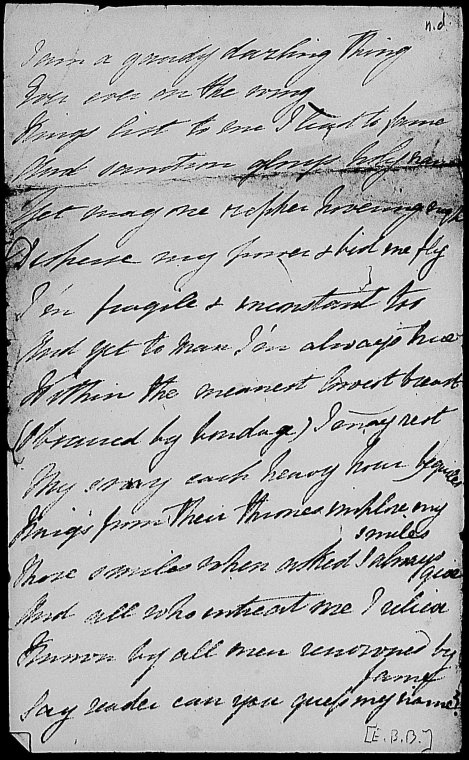 n.d.
I am a gaudy darling thing
For ever on the wing
Kings list to me I lead to fame
And sanction glory's holy name
Yet may one zephyr hovering nigh
Disperse my power & bid me fly
I'm fragile & inconstant too
And yet to Man I'm always true
Within the meanest lowest breast
(Obraced by bondage) I may rest
My song each heavy hour beguiles
Kings from their thrones implore my
smiles
Those smiles when asked I always
give
And all who entreat me I relieve
Known by all men renowned by
fame
Say reader can you guess my name?
[E.B.B.]